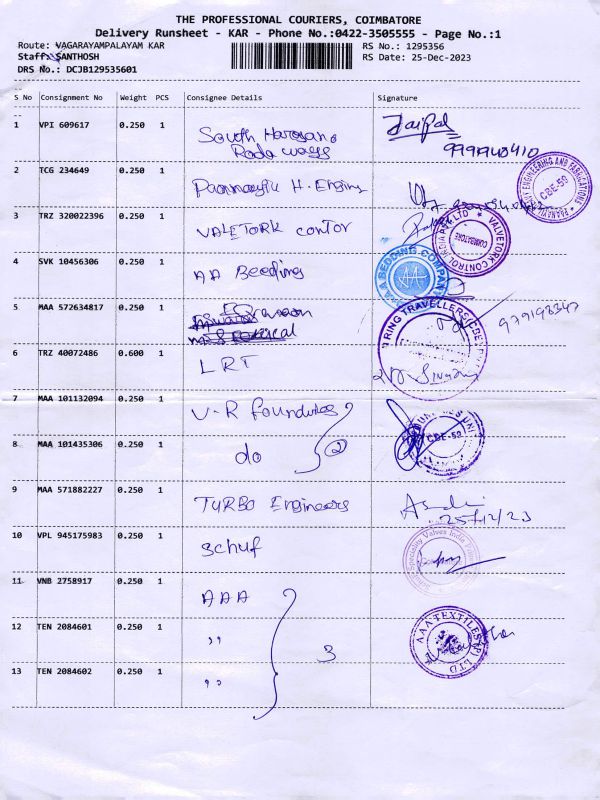 THE PROFESSIONAL COURIERS, COIMBATORE
Delivery Runsheet - KAR - Phone No.:0422-3505555 - Page No.:1
Route: VAGARAYAMPALAYAM KAR RS No.: 1295356
Staff: SANTHOSH RS Date: 25-Dec-2023
DRS No.: DCJB129535601
S No Consignment No Weight PCS Consignee Details Signature
1 VPI 609617 0.250 1 South
2 TCG 234649 0.250 1 H. Engine
CBE-59
3 TRZ 320022396 0.250 1 VALETORK contor
VALVETORK CONTROL INDIA PVT LTD COIMBATORE
4 SVK 10456306 0.250 1 AA Beeding
BEDDING COMPANY AA
5 MAA 572634817 0.250 1
RING TRAVELLERS
6 TRZ 40072486 0.600 1 LRT
7 MAA 101132094 0.250 1 V-R foundries
8 MAA 101435306 0.250 1 do 2
CBE-59
9 MAA 571882227 0.250 1 TURBO Engineers
25/12/23
10 VPL 945175983 0.250 1 Schuf
Speciality Valves India
11 VNB 2758917 0.250 1 AAA
12 TEN 2084601 0.250 1 ,, 3
AAA TEXTILES (P) LTD
13 TEN 2084602 0.250 1 ,,